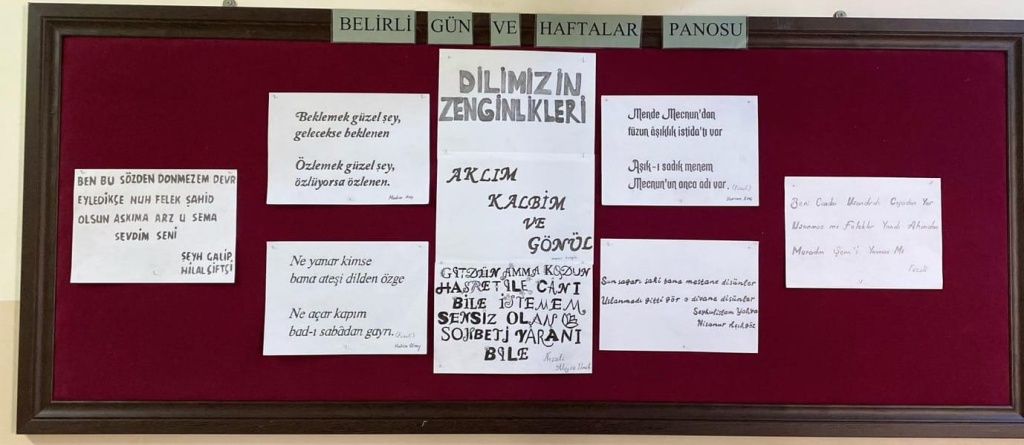 BELİRLİ GÜN VE HAFTALAR PANOSU
DİLİMİZİN
ZENGİNLİKLERİ
BEN BU SÖZDEN DONMEZEM DEVR
EYLEDİKÇE NUH FELEK ŞAHİD
OLSUN AŞKIMA ARZ U SEMA
SEVDİM SENİ
ŞEYH GALİP
HİLAL ŞİFTÇİ
Beklemek güzel şey,
gelecekse beklenen
Özlemek güzel şey,
özlüyorsa özlenen.
Ne yanar kimse
bana ateşi dilden özge
Ne açar kapım
bad-ı sabâdan gayrı. (Fuzuli)
AKLIM
KALBİM
VE
GÖNÜL
GİTDÜN AMMA KODUN
HASRET İLE CÂNI
BİLE İSTEMEM
SENSİZ OLAN
SOHBETİ YARANI
BİLE
Mende Mecnun'dan
füzun âşıklık istida'tı var
Aşık-ı sadık menem
Mecnun'un anca adı var. (Fuzuli)
Sun sagarı saki bana mestane disünler
Uslanmadı gitti gör o divane disünler
Şeyhülislam Yahya
Nisanur
Beni Candan Usandırdı Cefadan Yar
Usanmaz mı Felekler Yandı Ahımdan
Muradım Şem'i Yanmaz Mı
Fuzuli